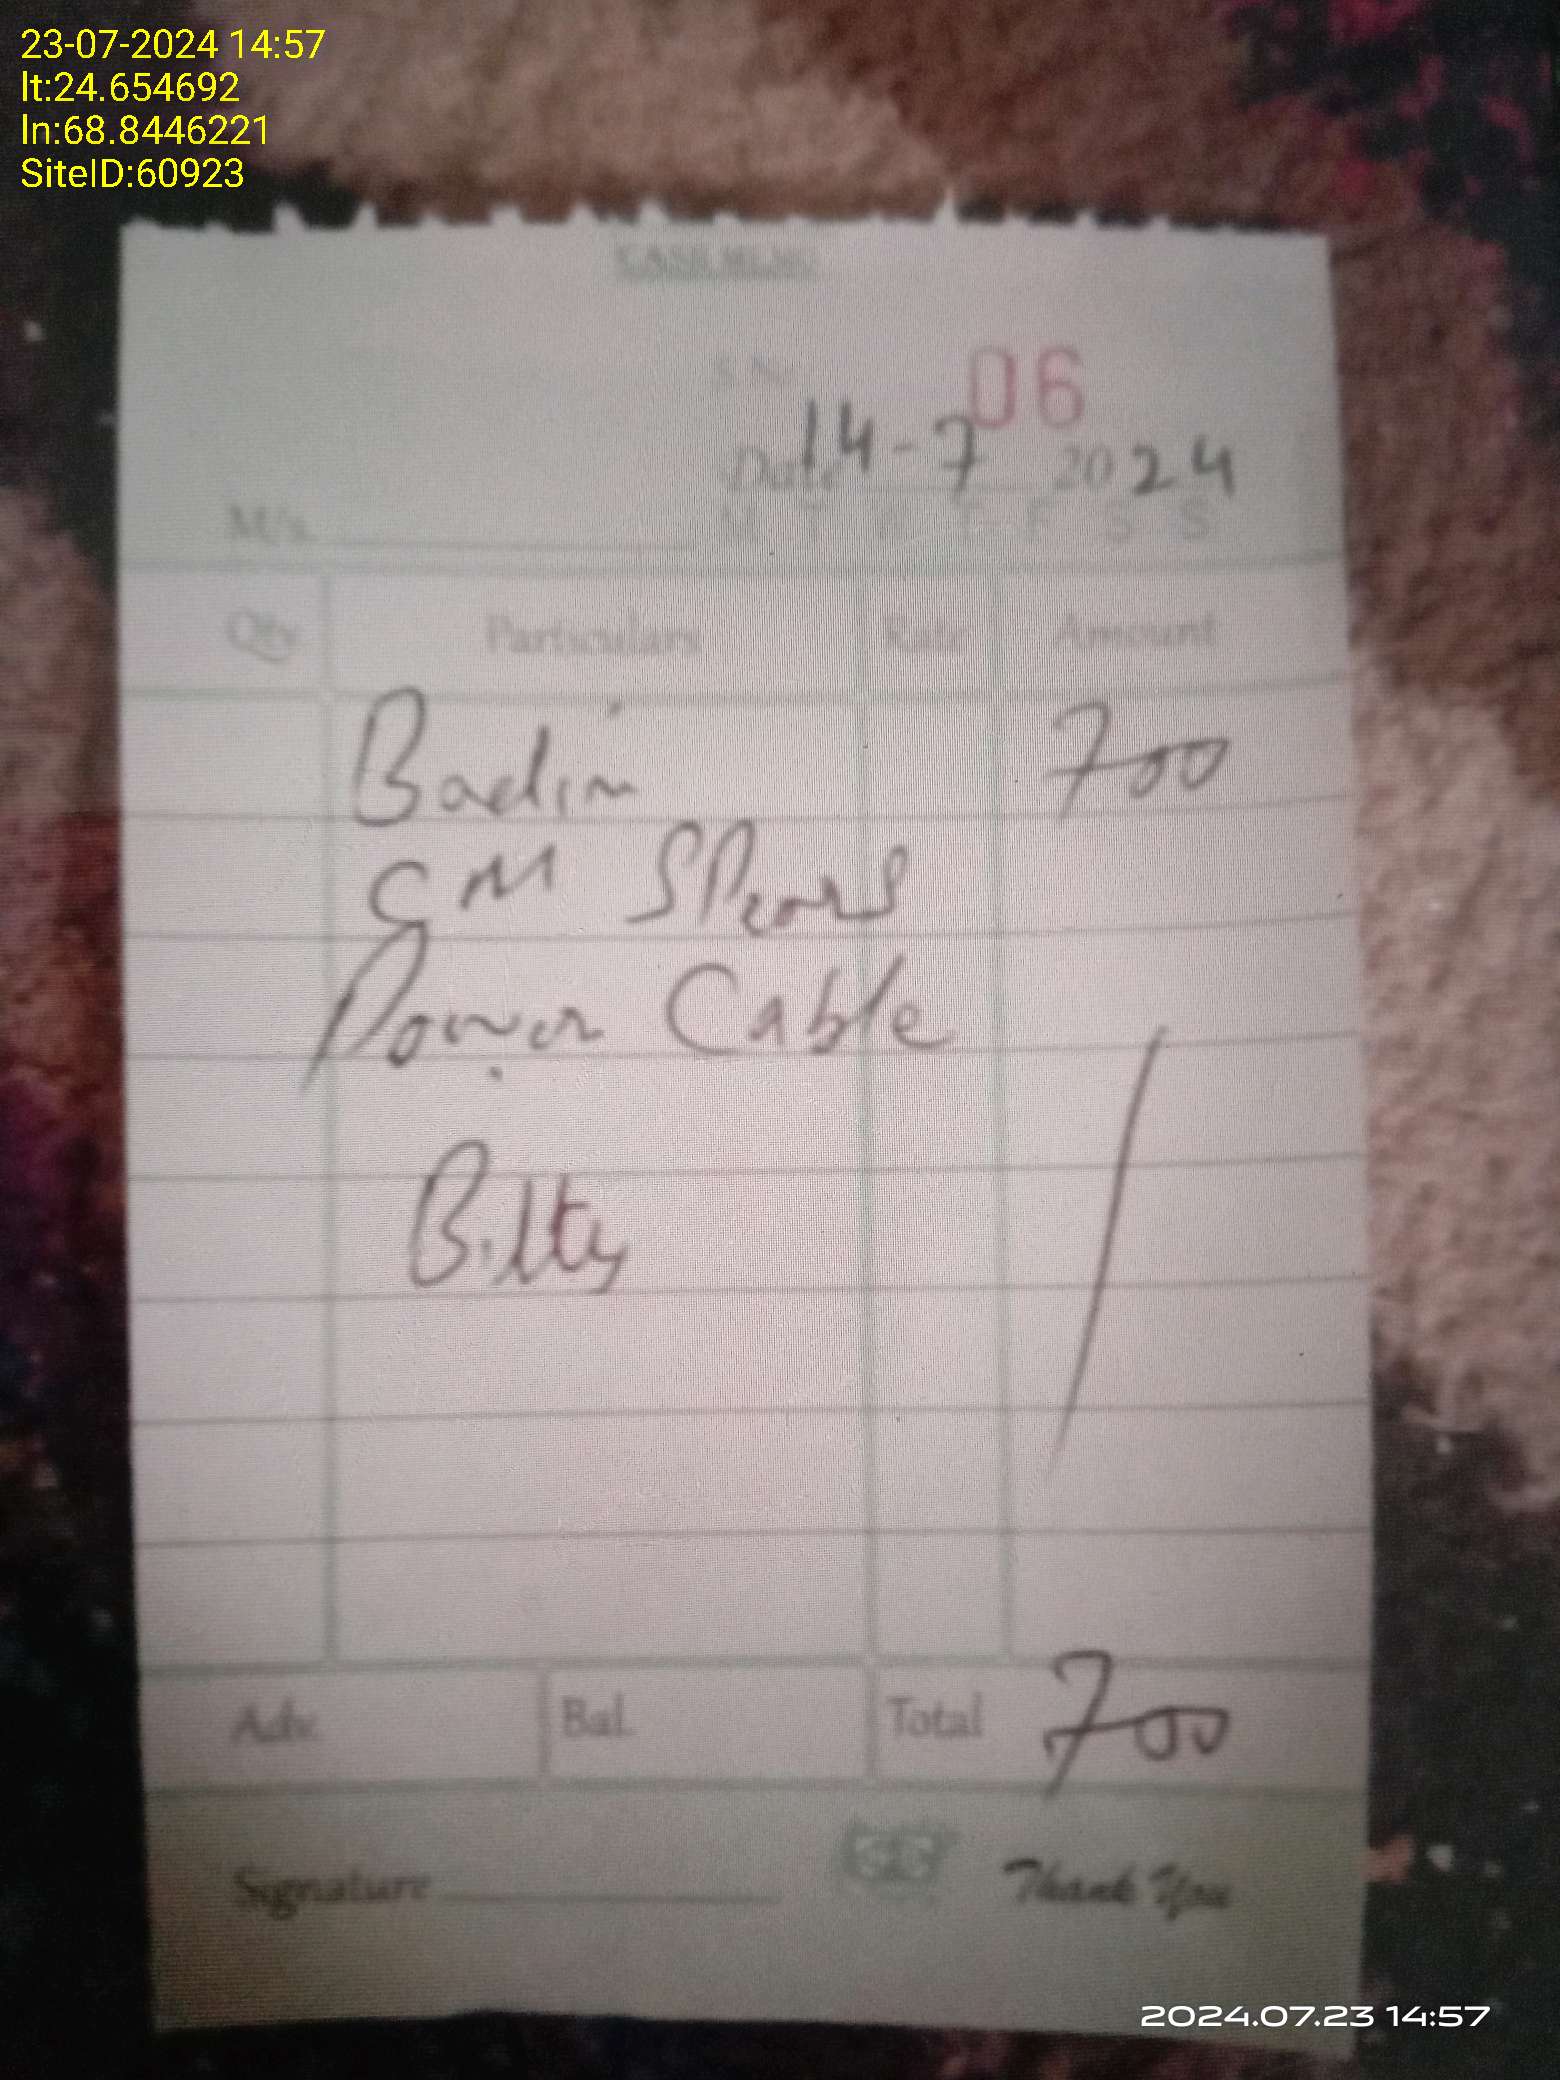 23-07-2024 14:57
lt:24.654692
ln:68.8446221
SiteID:60923
CASH MEMO
S.N. 06
Date 14-7 2024
M/s.
M T W T F S S
Qty. Particulars Rate Amount
Badin 700
CM
Power Cable
Bilty
Adv. Bal. Total 700
Signature Thank You
2024.07.23 14:57